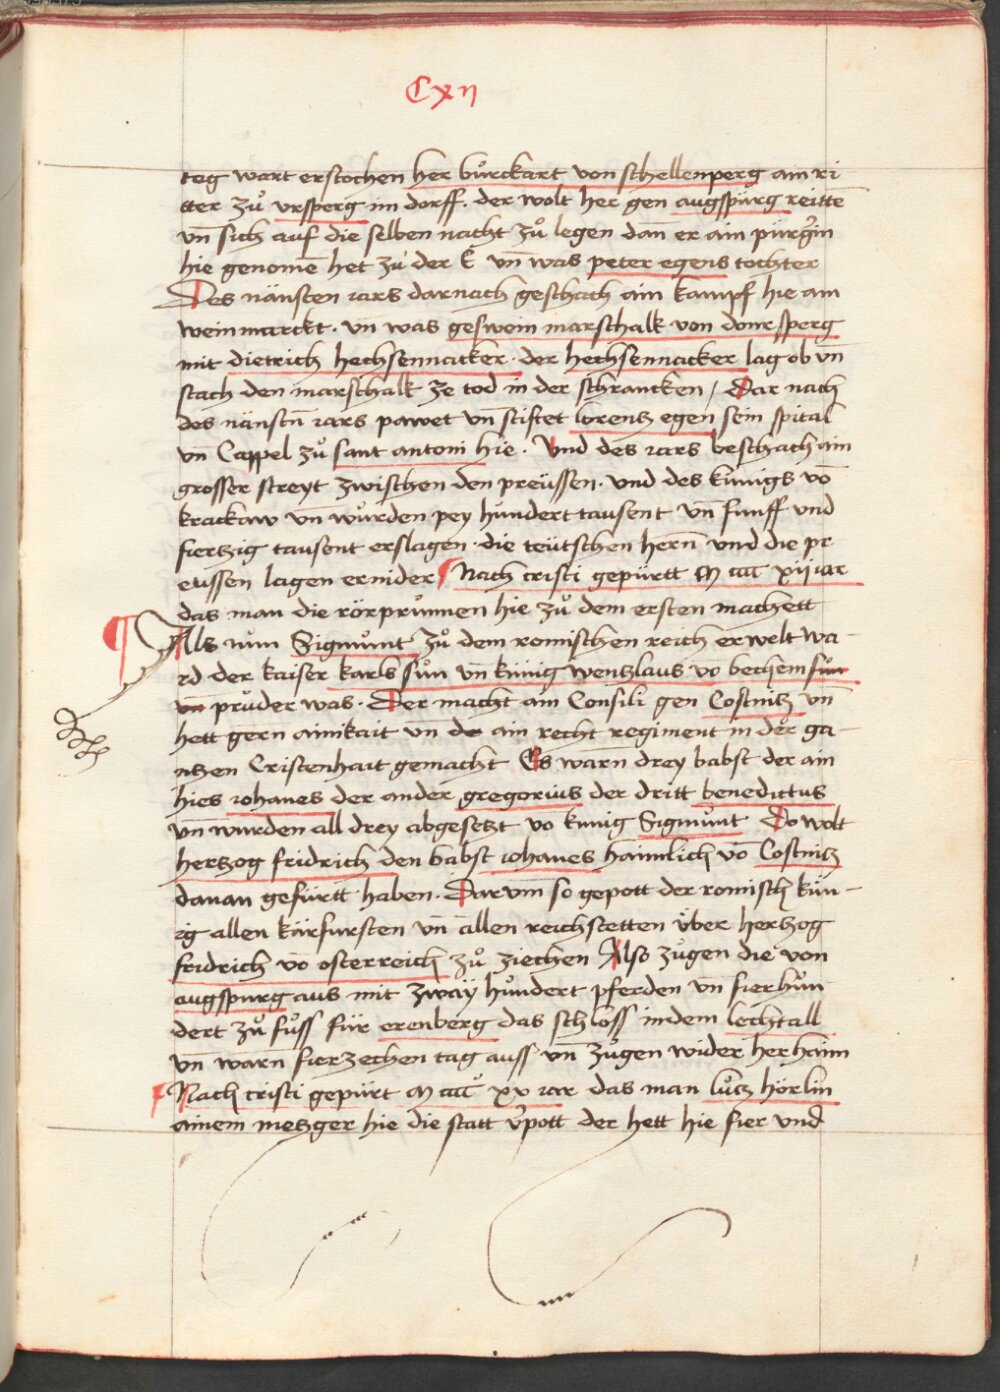 Cxij
tag wart erstochen her bůrckart von schellenperg ain ri
tter zů vrsperg im dorff. der wolt her gen augspurg reittē
vn̄ sich auf die selben nacht zů legen dan er ain pürgʼin
hie genomē het zu der E vn̄ was peter egens tochter
Des nänsten iars darnach geschach ain kampf hie am
weinmarckt. vn̄ was geswein marschalk von donrsperg
mit dietrich hechsennacker. der hechsennacker lag ob vn̄
stach den marschalk ze tod in der schrancken / Dar nach
des nänstn̄ iars pawet vn̄ stiftet lorentz egen sein spital
vn̄ Cappel zů sant antoni hie. Vnd des iars beschach ain
grosser streyt zwischen den preüssen. vnd des künigs vō
krackaw vn̄ wurden pey hundert tausent vn̄ funff vnd
fiertzig tausent erslagen. die teütschen hern̄ vnd die pr
eussen lagen ernider Nach cristi gepürtt M cccc xij iar
das man die rörprůnnen hie zů dem ersten machett
Als nun Sigmůnt zů dem romischen reich erwelt wa-
rd der kaiser karls sůn vn̄ künig wentzlaus vō bechem sun
vn̄ průder was. Der macht ain Consili gen Costnitz vn̄
hett gern ainikait vn̄ de ain recht regiment in der ga-
ntzen Cristenhait gemacht Es warn drey babst der ain
hies iohanes der ander gregorius der dritt benedictus
vn̄ wurden all drey abgesetzt vō kunig Sigmůnt Do wolt
hertzog fridrich den babst iohanes haimlich vō Costnitz
danan gefürtt haben. Darvm̄ so gepott der romisch kün-
ig allen kürfursten vn̄ allen reichstetten über hertzog
fridrich vō osterreich zů ziechen Also zugen die von
augspurg aus mit zway hůndert pferden vn̄ fierhůn
dert zů fůss für erenberg das schloss in dem lechtall
vn̄ warn fierzechen tag auss vn̄ zugen wider her haim
Nach cristi gepürt M cccc xv iar das man lůtz hörlin
ainem metzger hie die statt vʼpott der hett hie fier vnd